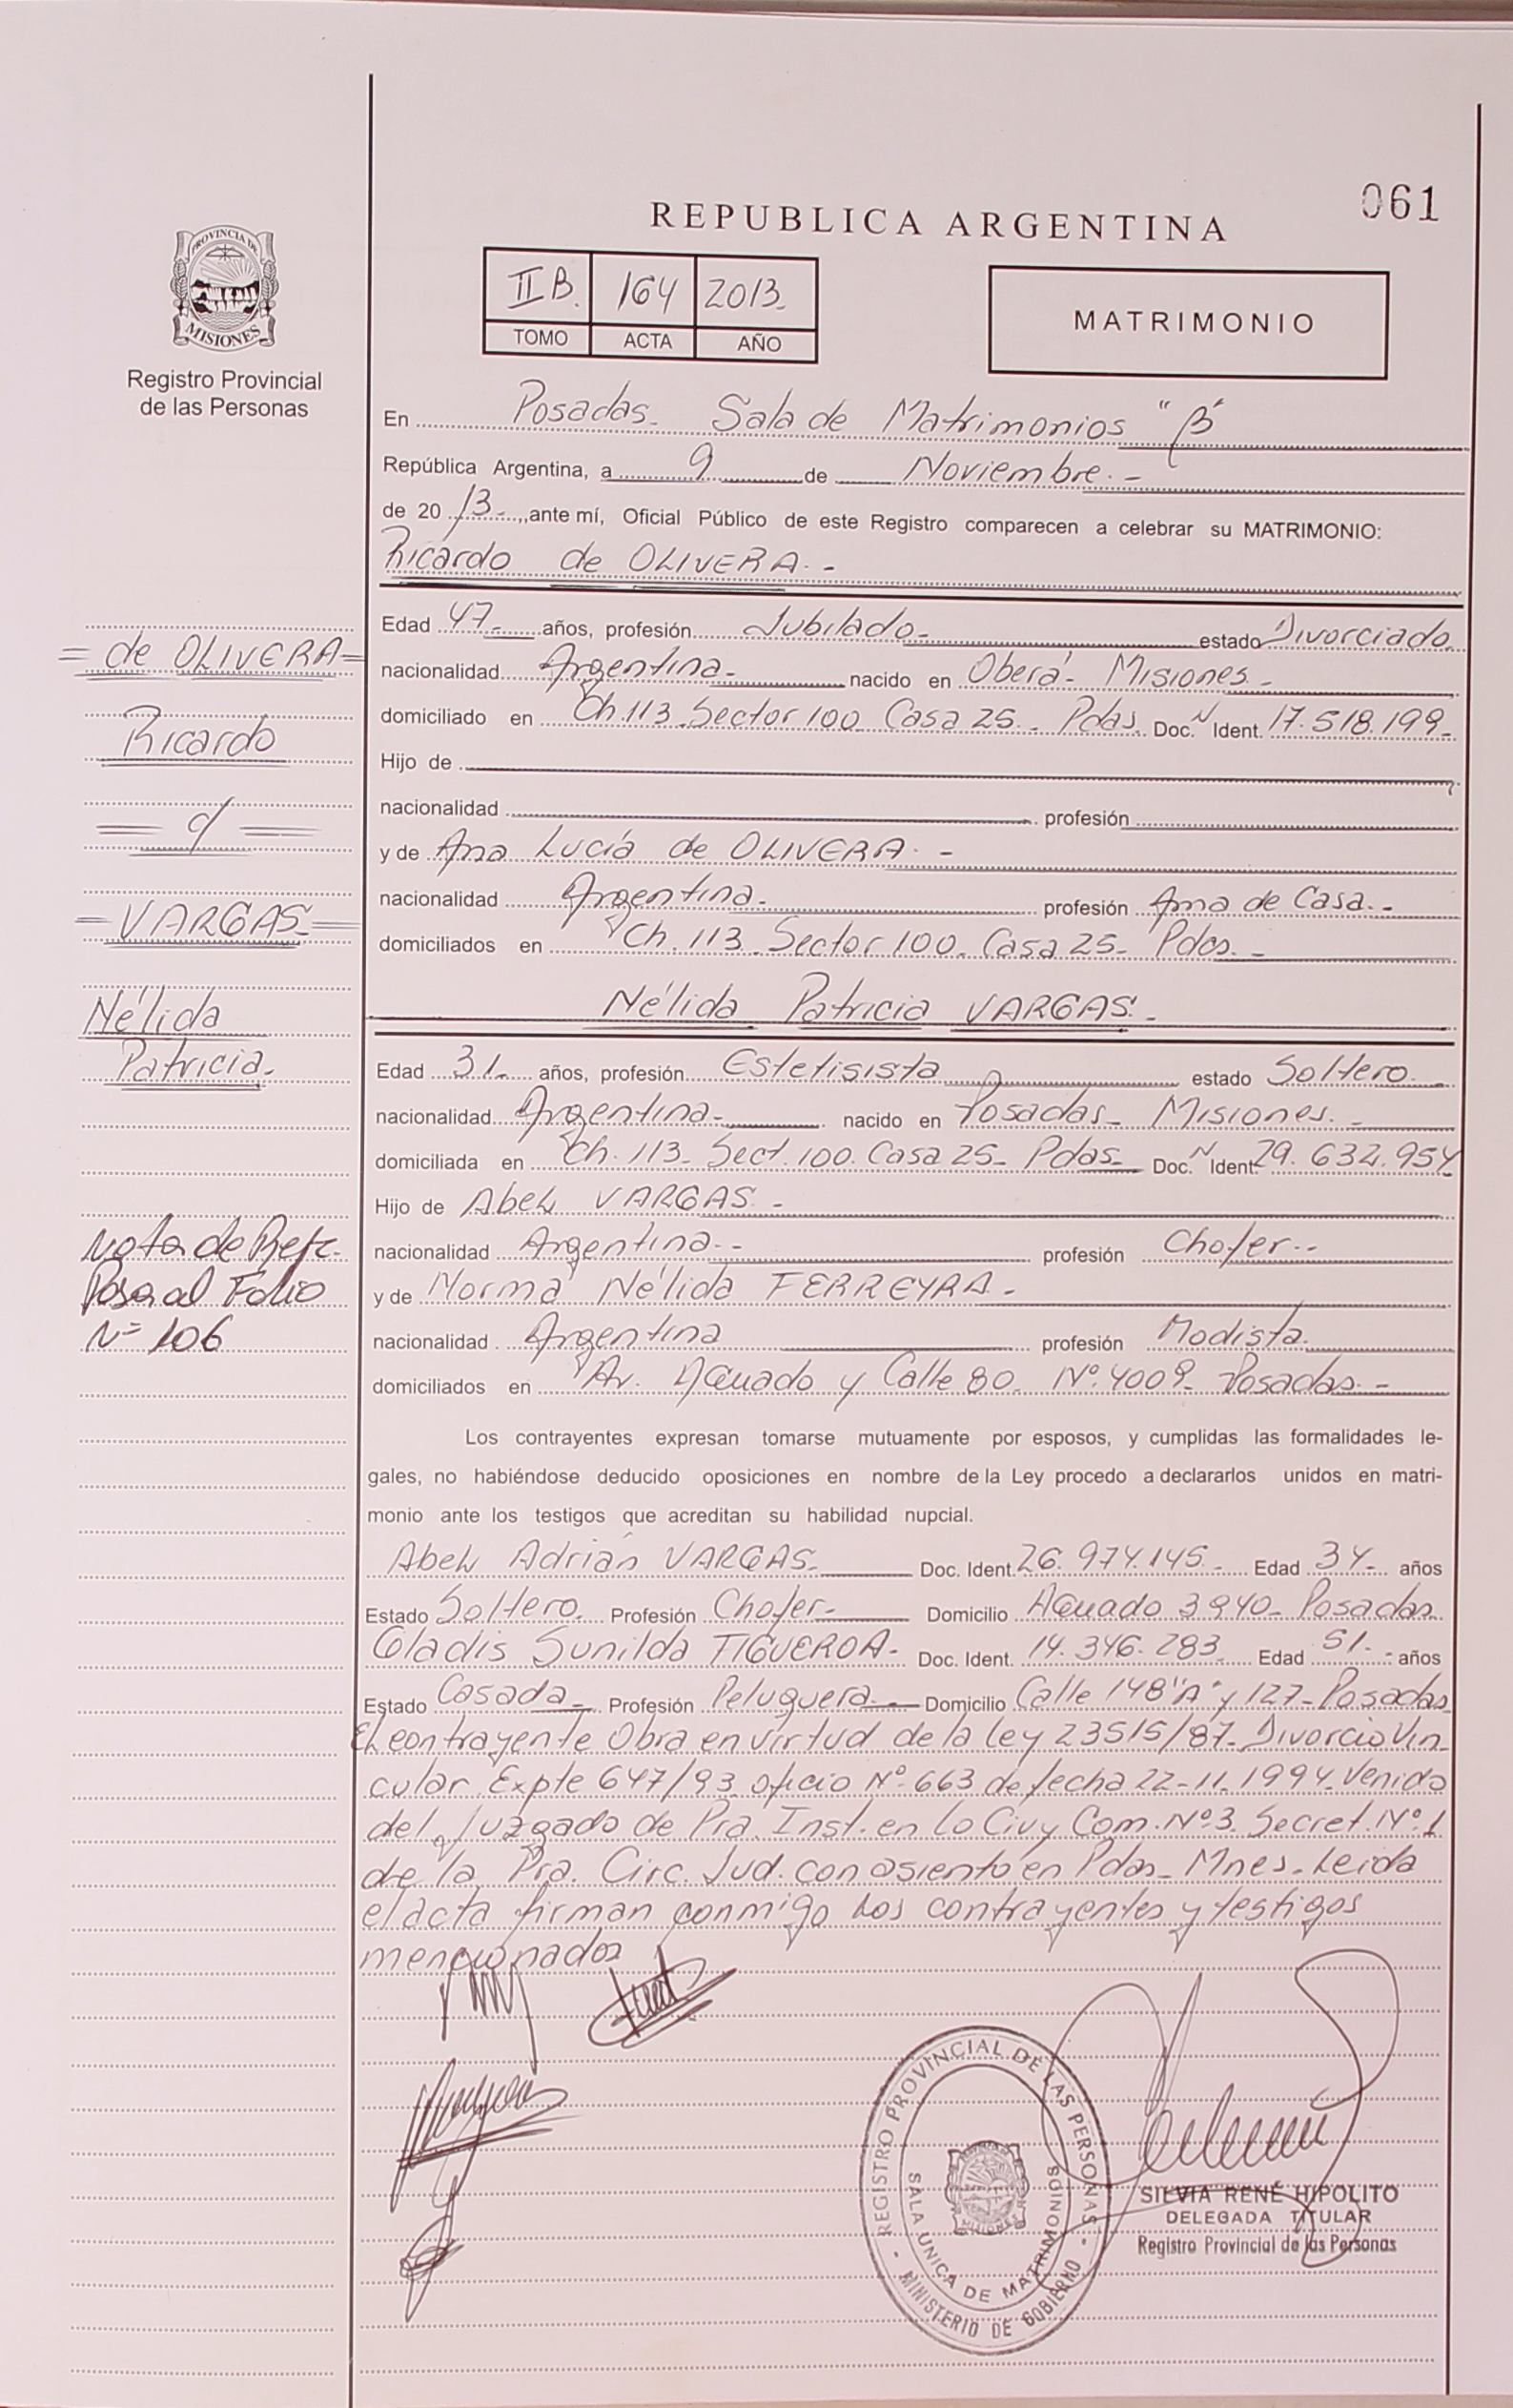 061
REPUBLICA ARGENTINA
PROVINCIA DE
MISIONES
Registro Provincial
de las Personas
II B. 164 2013
TOMO ACTA AÑO
MATRIMONIO
En Posadas - Sala de Matrimonios "B"
República Argentina, a 9 de Noviembre. -
de 20 13 -, ante mí, Oficial Público de este Registro comparecen a celebrar su MATRIMONIO:
Ricardo de OLIVERA. -
Edad 47 - años, profesión Jubilado - estado Divorciado
nacionalidad Argentina - nacido en Oberá - Misiones -
domiciliado en Ch. 113 - Sector 100 - Casa 25 - Pdas. Doc. N Ident. 17.518.199 -
Hijo de
nacionalidad profesión
y de Ana Lucía de OLIVERA. -
nacionalidad Argentina - profesión Ama de Casa. -
domiciliados en Ch. 113 - Sector 100 - Casa 25 - Pdas. -
Nélida Patricia VARGAS. -
Edad 31 años, profesión Estetisista estado Soltero -
nacionalidad Argentina - nacido en Posadas - Misiones. -
domiciliada en Ch. 113 - Sect. 100. Casa 25 - Pdas - Doc. N Ident. 29.632.954
Hijo de Abel VARGAS. -
nacionalidad Argentina. - profesión Chofer. -
y de Norma Nélida FERREYRA. -
nacionalidad Argentina profesión Modista.
domiciliados en Av. Aguado y Calle 80 - Nº 4009 - Posadas. -
Los contrayentes expresan tomarse mutuamente por esposos, y cumplidas las formalidades le-
gales, no habiéndose deducido oposiciones en nombre de la Ley procedo a declararlos unidos en matri-
monio ante los testigos que acreditan su habilidad nupcial.
Abel Adrián VARGAS - Doc. Ident. 26.974.145 - Edad 34 - años
Estado Soltero. Profesión Chofer - Domicilio Aguado 3940 - Posadas
Gladis Sunilda FIGUEROA - Doc. Ident. 14.346.283 Edad 51 - años
Estado Casada - Profesión Peluquera - Domicilio Calle 148 "A" y 127 - Posadas
El contrayente Obra en virtud de la ley 23515/87 - Divorcio Vin-
cular. Expte 647/93 oficio Nº 663 de fecha 22-11-1994. Venido
del Juzgado de Pra. Inst. en Lo Civ y Com. Nº 3. Secret. Nº 1
de la Pra. Circ. Jud. con asiento en Pdas - Mnes - Leida
el acta firman conmigo los contrayentes y testigos
mencionados
= de OLIVERA =
Ricardo
= c/ =
= VARGAS =
Nélida
Patricia -
Nota de Refe.
Pasa al Folio
Nº 106
REGISTRO PROVINCIAL DE LAS PERSONAS
SALA UNICA DE MATRIMONIOS
MINISTERIO DE GOBIERNO
SILVIA RENÉ HIPOLITO
DELEGADA TITULAR
Registro Provincial de las Personas